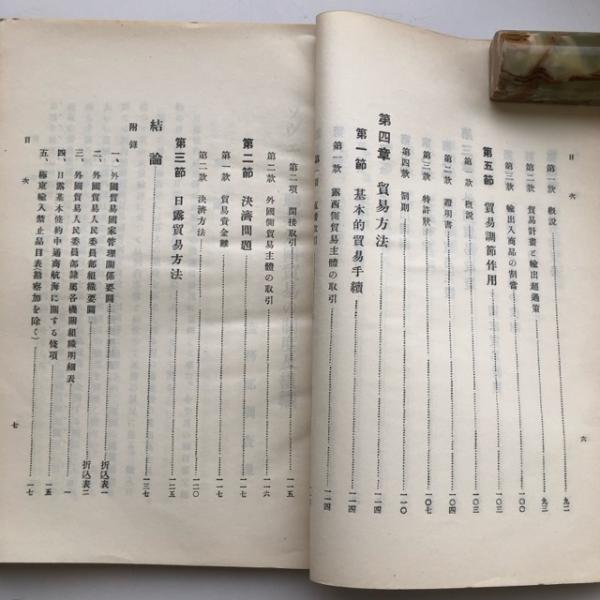 目次
第一款 概説 九二
第二款 貿易計畫と輸出超過策 九三
第三款 輸出入商品の割當 一〇〇
第五節 貿易調節作用 一〇三
第一款 概說 一〇三
第二款 證明書 一〇四
第三款 特許狀 一〇七
第四款 罰則 一一〇
第四章 貿易方法 一一四
第一節 基本的貿易手續 一一四
第一款 露西側貿易主體の取引 一一四
六
第二項 間接取引 一一五
第二款 外國側貿易主體の取引 一一六
第二節 決濟問題
第一款 貿易資金難
第二款 決濟方法 一二〇
第三節 日露貿易方法 一二五
結論 一三七
附錄
一、外國貿易國家管理關係要圖 折込表一
二、外國貿易人民委員部組織要圖 折込表二
三、外國貿易人民委員部隷屬各機關組織明細表 一
四、日露基本條約中通商航海に關する條項 一五
五、極東輸入禁止品目表(勘察加を除く) 一七
目次
七